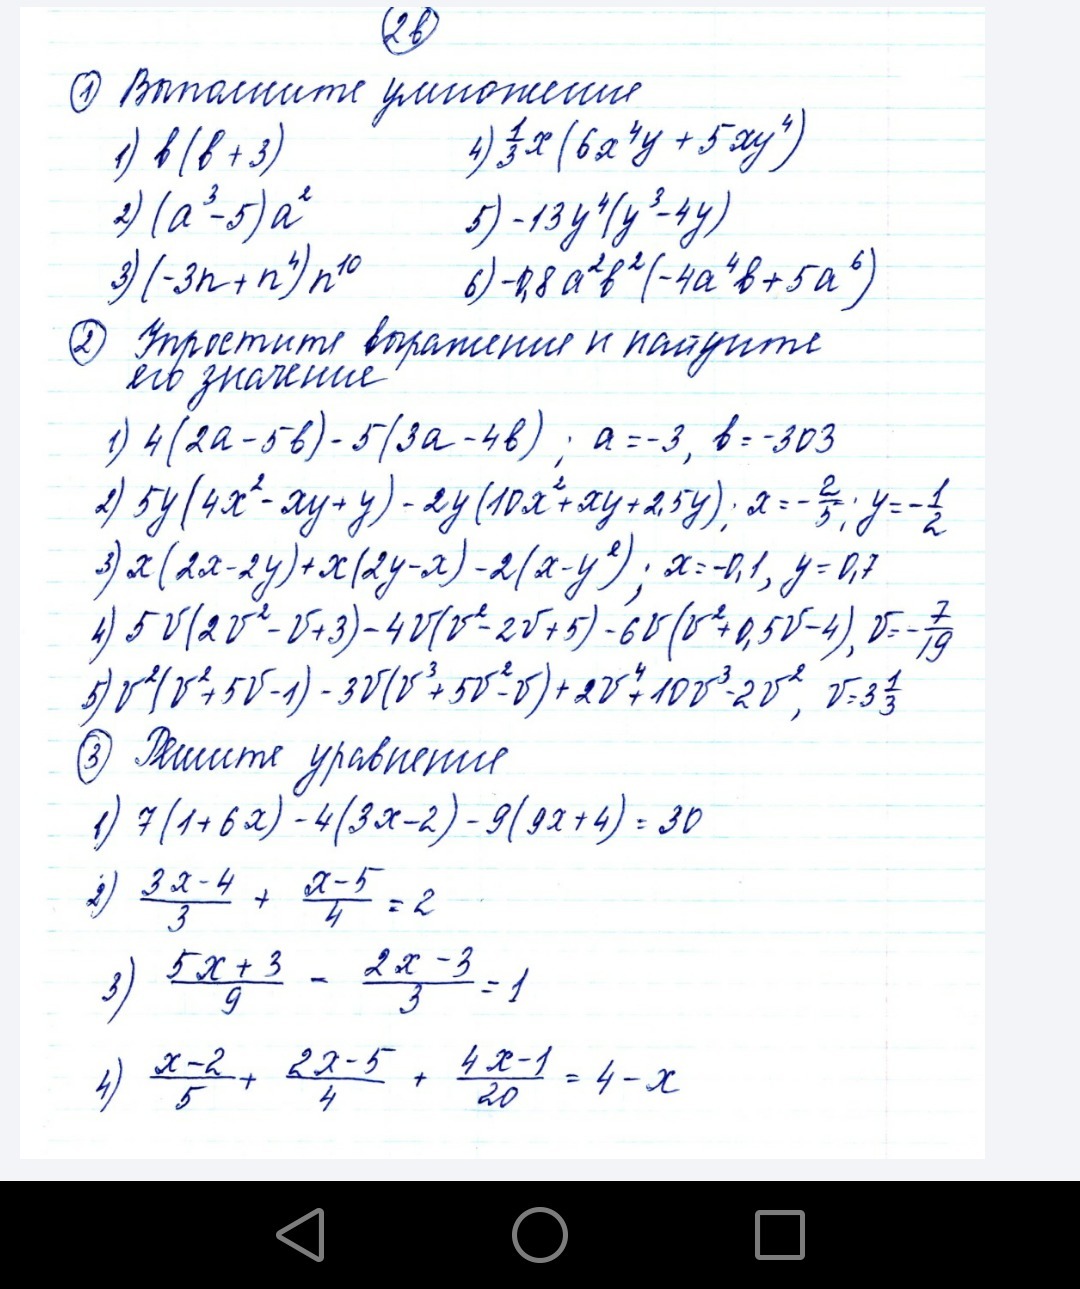 2в
1 Выполните умножение
1) в(в+3)
4) 1/3 x (6x⁴y + 5xy⁴)
2) (a³-5)a²
5) -13y⁴(y³-4y)
3) (-3n+n⁴)n¹⁰
6) -0,8a²в²(-4a⁴в+5a⁶)
2 Упростите выражение и найдите
его значение
1) 4(2a-5в)-5(3a-4в); a=-3, в=-303
2) 5y(4x²-xy+y)-2y(10x²+xy+2,5y); x=-2/5; y=-1/2
3) x(2x-2y)+x(2y-x)-2(x-y²); x=-0,1, y=0,7
4) 5v(2v²-v+3)-4v(v²-2v+5)-6v(v²+0,5v-4), v=-7/19
5) v²(v²+5v-1)-3v(v³+5v²-v)+2v⁴+10v³-2v², v=3 1/3
3 Решите уравнение
1) 7(1+6x)-4(3x-2)-9(9x+4)=30
2) (3x-4)/3 + (x-5)/4 = 2
3) (5x+3)/9 - (2x-3)/3 = 1
4) (x-2)/5 + (2x-5)/4 + (4x-1)/20 = 4-x